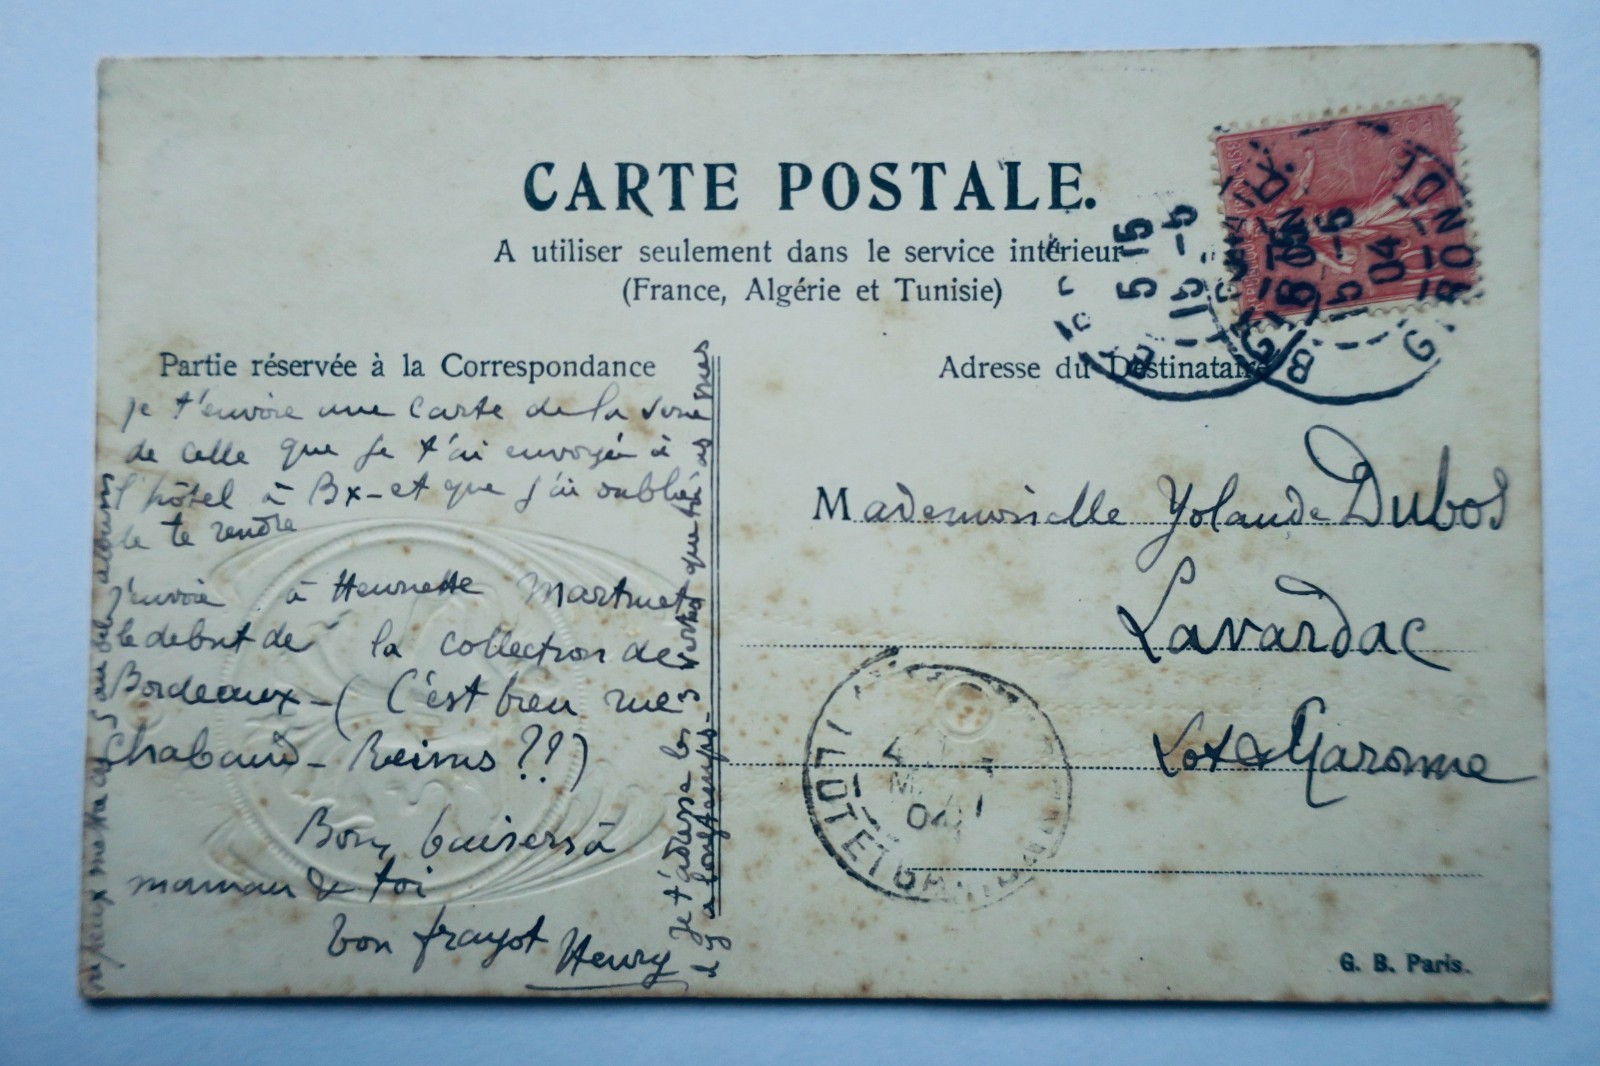 CARTE POSTALE.
A utiliser seulement dans le service intérieur
(France, Algérie et Tunisie)
Partie réservée à la Correspondance
Adresse du Destinataire
je t'envoie une carte de la
de celle que je t'ai envoyée à
l'hôtel à Bx - et que j'ai oublié
de te rendre
j'envoie à Henriette Martinet
le debut de la collection de
Bordeaux - (C'est bien rue
Chabaud - Reims ??)
Bons baisers à
maman & toi
ton frangot
Henry
Je t'adresse les vertes que tu as
il y a longtemps -
Mademoiselle Yolande Dubos
Lavardac
Lot & Garonne
5 15
15 - 5
15 - 5
04
MAI
04
LOT ET GAR
G. B. Paris.